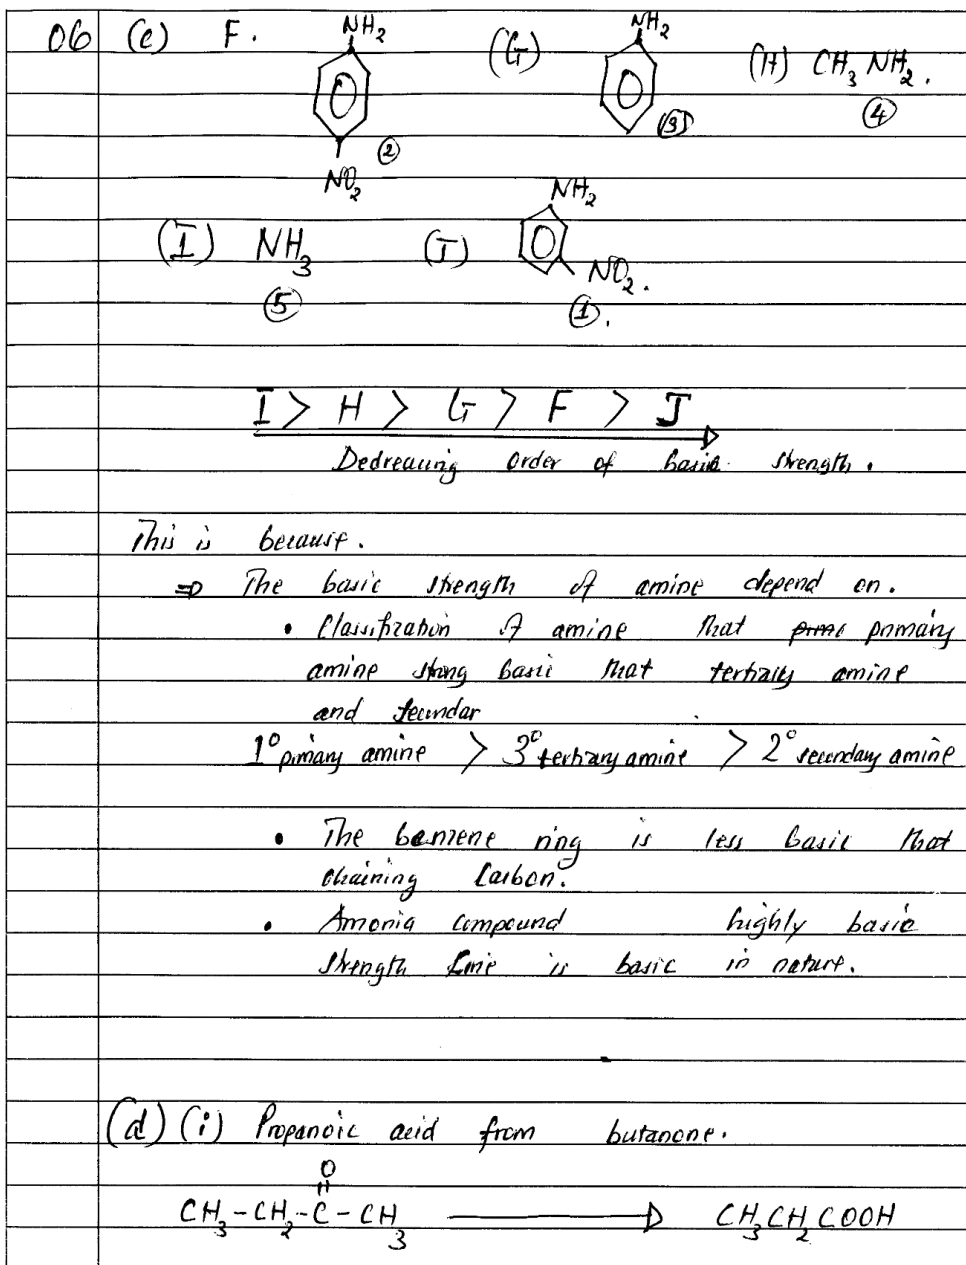 06 (c) F. NH2 (G) NH2 (H) CH3 NH2.
② (3) ④
NO2
NH2
(I) NH3 (J) NO2.
⑤ ①.
I > H > G > F > J
Dedreacing order of basic strength.
This is because.
⇒ The basic strength of amine depend on.
• Classification of amine that primary
amine strong basic that tertiary amine
and secundar
1° primary amine > 3° tertiary amine > 2° secundary amine
• The benzene ring is less basic that
chaining Carbon.
• Amonia compound highly basic
strength is basic in nature.
(d) (i) Propanoic acid from butanone.
O
CH3-CH2-C-CH3 → CH3CH2COOH